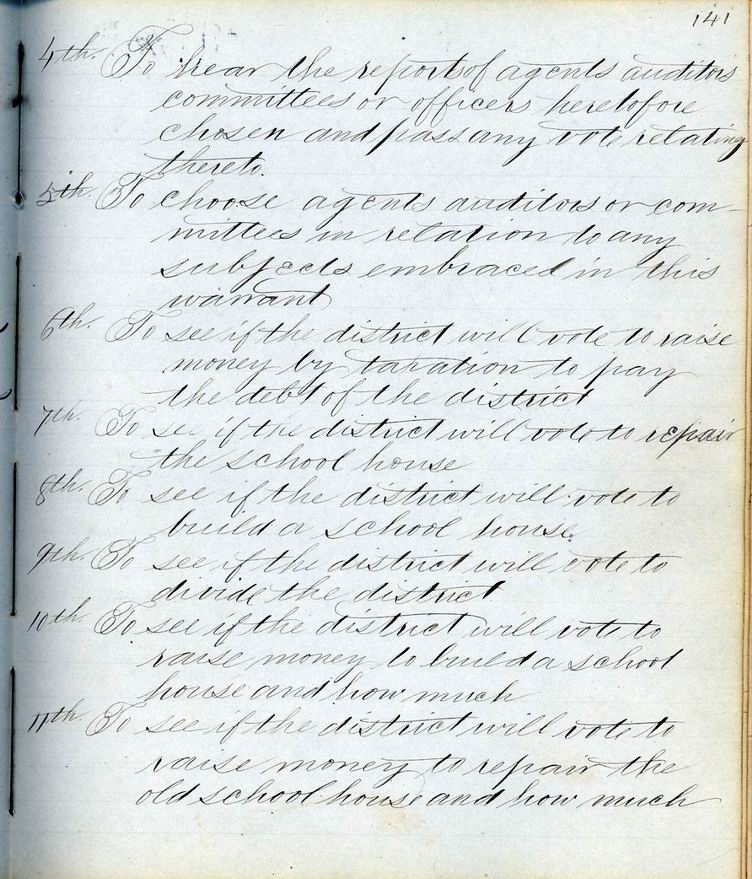 141
4th. To hear the reports of agents auditors
committees or officers heretofore
chosen and pass any vote relating
thereto.
5th. To choose agents auditors or com-
mittees in relation to any
subjects embraced in this
warrant
6th. To see if the district will vote to raise
money by taxation to pay
the debt of the district
7th. To see if the district will vote to repair
the school house
8th. To see if the district will vote to
build a school house.
9th. To see if the district will vote to
divide the district
10th To see if the district will vote to
raise money to build a school
house and how much
11th. To see if the district will vote to
raise money to repair the
old school house and how much